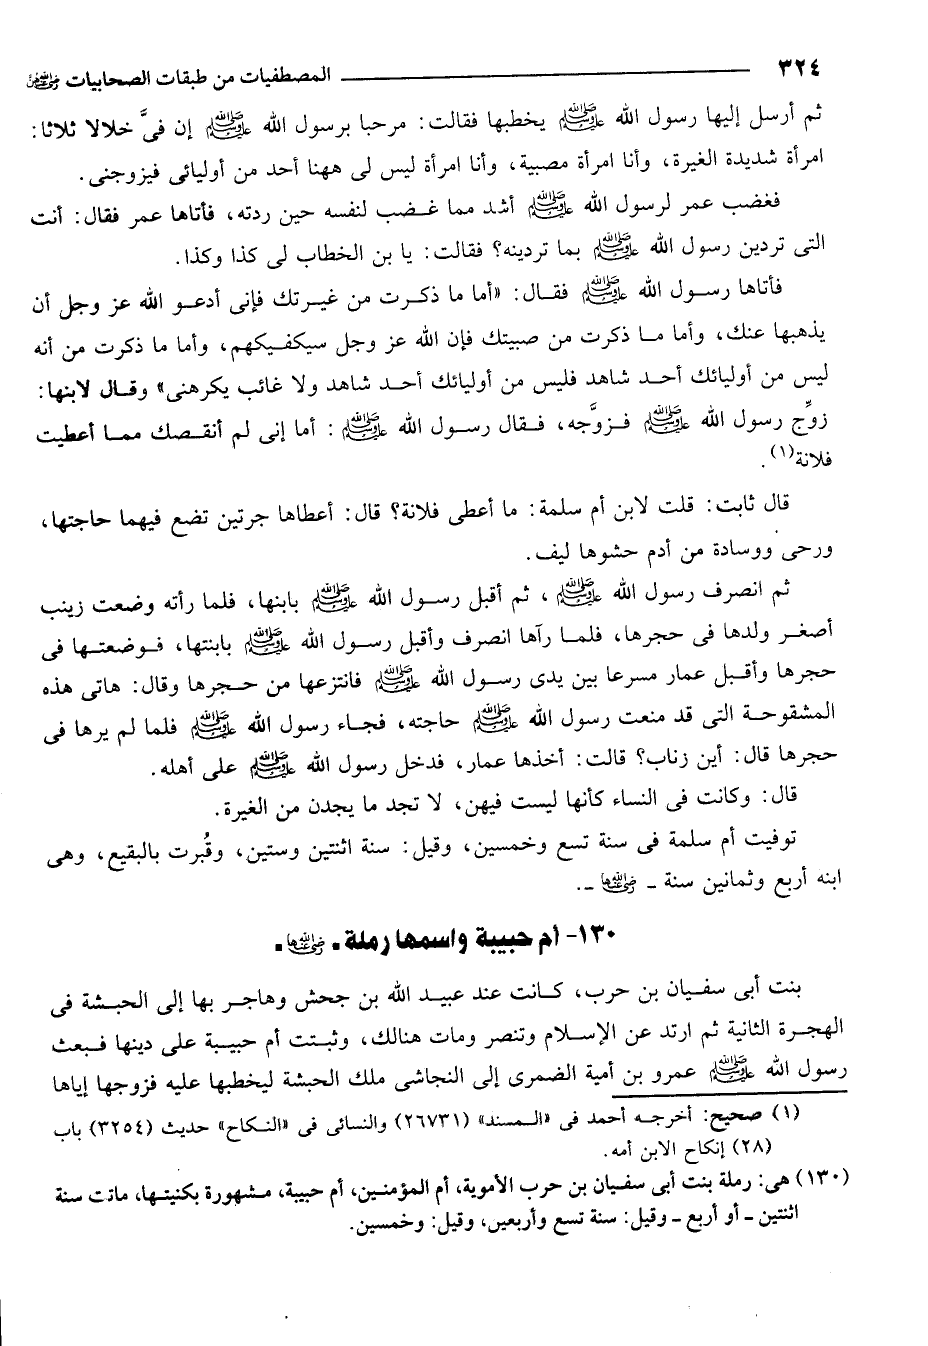 ٣٢٤ المصطفيات من طبقات الصحابيات رضي الله عنهن
ثم أرسل إليها رسول الله ﷺ يخطبها فقالت: مرحبا برسول الله ﷺ إن فىَّ خلالا ثلاثا:
امرأة شديدة الغيرة، وأنا امرأة مصبية، وأنا امرأة ليس لى ههنا أحد من أوليائى فيزوجنى.
فغضب عمر لرسول الله ﷺ أشد مما غضب لنفسه حين ردته، فأتاها عمر فقال: أنت
التى تردين رسول الله ﷺ بما تردينه؟ فقالت: يا بن الخطاب لى كذا وكذا.
فأتاها رسول الله ﷺ فقال: «أما ما ذكرت من غيرتك فإنى أدعو الله عز وجل أن
يذهبها عنك، وأما ما ذكرت من صبيتك فإن الله عز وجل سيكفيكهم، وأما ما ذكرت من أنه
ليس من أوليائك أحد شاهد فليس من أوليائك أحد شاهد ولا غائب يكرهنى» وقال لابنها:
زوِّج رسول الله ﷺ فزوَّجه، فقال رسول الله ﷺ: أما إنى لم أنقصك مما أعطيت
فلانة(١).
قال ثابت: قلت لابن أم سلمة: ما أعطى فلانة؟ قال: أعطاها جرتين تضع فيهما حاجتها،
ورحى ووسادة من أدم حشوها ليف.
ثم انصرف رسول الله ﷺ، ثم أقبل رسول الله ﷺ بابنها، فلما رأته وضعت زينب
أصغر ولدها فى حجرها، فلما رآها انصرف وأقبل رسول الله ﷺ بابنتها، فوضعتها فى
حجرها وأقبل عمار مسرعا بين يدى رسول الله ﷺ فانتزعها من حجرها وقال: هاتى هذه
المشقوحة التى قد منعت رسول الله ﷺ حاجته، فجاء رسول الله ﷺ فلما لم يرها فى
حجرها قال: أين زناب؟ قالت: أخذها عمار، فدخل رسول الله ﷺ على أهله.
قال: وكانت فى النساء كأنها ليست فيهن، لا تجد ما يجدن من الغيرة.
توفيت أم سلمة فى سنة تسع وخمسين، وقيل: سنة اثنتين وستين، وقُبرت بالبقيع، وهى
ابنه أربع وثمانين سنة ـ رضي الله عنها ـ.
١٣٠- أم حبيبة واسمها رملة ـ رضي الله عنها ـ
بنت أبى سفيان بن حرب، كانت عند عبيد الله بن جحش وهاجر بها إلى الحبشة فى
الهجرة الثانية ثم ارتد عن الإسلام وتنصر ومات هنالك، وثبتت أم حبيبة على دينها فبعث
رسول الله ﷺ عمرو بن أمية الضمرى إلى النجاشى ملك الحبشة ليخطبها عليه فزوجها إياها
(١) صحيح: أخرجه أحمد فى «المسند» (٢٦٧٣١) والنسائى فى «النكاح» حديث (٣٢٥٤) باب
(٢٨) إنكاح الابن أمه.
(١٣٠) هى: رملة بنت أبى سفيان بن حرب الأموية، أم المؤمنين، أم حبيبة، مشهورة بكنيتها، ماتت سنة
اثنتين ـ أو أربع ـ وقيل: سنة تسع وأربعين، وقيل: وخمسين.